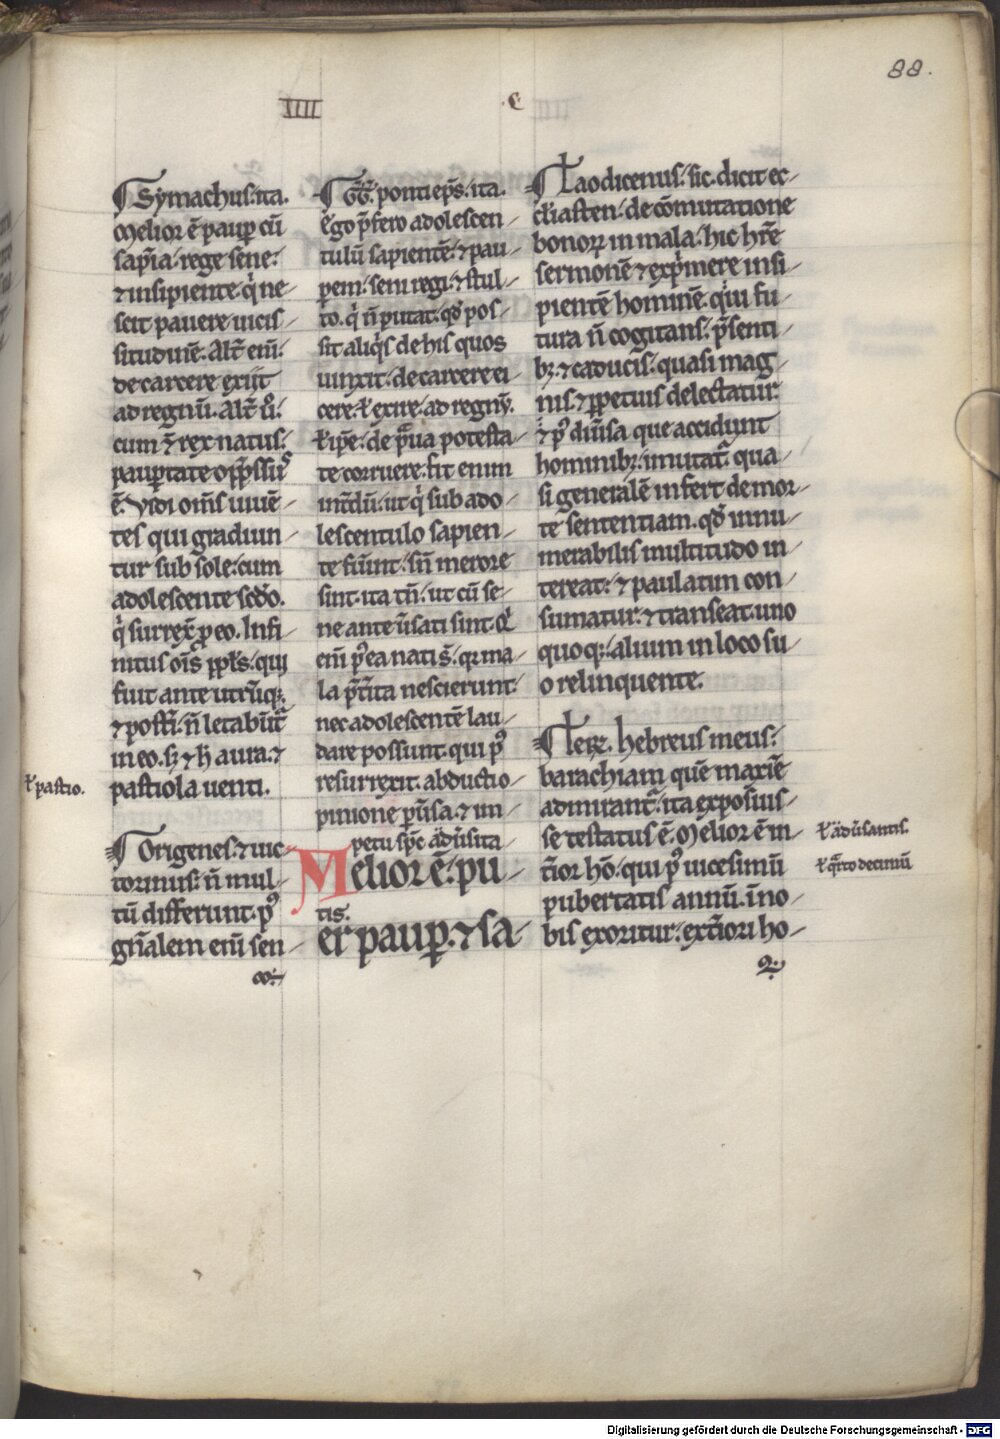 88.
IIII
.C
¶ Symachus. ita.
Melior ē paup̄ cū
sap̄ia. rege sene.
⁊ insipiente. q̇ ne
scit pauere uicis
situdinē. Alt̄ eni.
de carcere exijt
ad regnū. Alt̄ u̾.
cum ē rex natus.
paup̄tate opp̄ssus
ē. Vidi om̄s uiuē
tes qui gradiun
tur sub sole. cum
adolescente scd̄o.
q̇ surrex̄ p̄ eo. Infi
nitus oīs pp̄ls. qui
fuit ante utrūq;.
⁊ postī. n̄ letabūt̄
in eo. s; ⁊ h̄ aura. ⁊
pastio la uenti.
ł pastio.
¶ Origenes. ⁊ uic
torinus. n̄ mul
tū differunt. p̾
gn̄alem enī sen
¶ GḠ. pontiep̄s. ita.
ego p̄fero adolescen
tulū sapientē. ⁊ pau
perē. seni regi. ⁊ stul
to. q̇ n̄ putat. qd̄ pos
sit aliq̇s de his quos
uinxit. de carcere ei
cere. ł exire. ad regnū.
ł ip̄e. de p̄ua potesta
te corruere. fit enim
int̄dū. ut q̇ sub ado
lescentulo sapien
te fūint. sn̄ merore
sint. ita tn̄. ut cū se
ne ante ūsati sint. Q̇
enī p̾ ea nati s̄. q̄ ma
la p̄t̄ita nescierunt.
nec adolescentē lau
dare possunt. qui p̾
resurrexit. abductio
pinione p̄uersa. ⁊ im
petu sp̄c ad̄uersita
tis.
Melior ē. pu
er paup̄. ⁊ sa
¶ Laodicenus. sic. dicit ec
cl̄iasten. de cōmutatione
bonoꝝ in mala. hic hr̄e
sermonē ⁊ exp̄mere insi
pientē hominē. q̇ ī fu
tura n̄ cogitans. p̄senti
b; ⁊ caducis. quasi mag
nis. ⁊ pp̄etuis delectatur.
⁊ p̾ diūsa que accidunt
hominib;. imutat̄. qua
si generalē infert de mor
te sententiam. qd̄ innu
merabilis multitudo in
tereat. ⁊ paulatim con
sumatur. ⁊ transeat. uno
quoq;. alium in loco su
o relinquente.
¶ Ieꝝ. hebreus meus.
barachiam quē maxīe
admirant̄. ita exposīus
se testatus ē. Melior ē in
t̄ior hō. qui p̾ uicesimū
pubertatis annū. ī no
bis exoritur. ext̄iori ho
ł ad̄uersantis.
ł q̄rto decimū
Digitalisierung gefördert durch die Deutsche Forschungsgemeinschaft - DFG